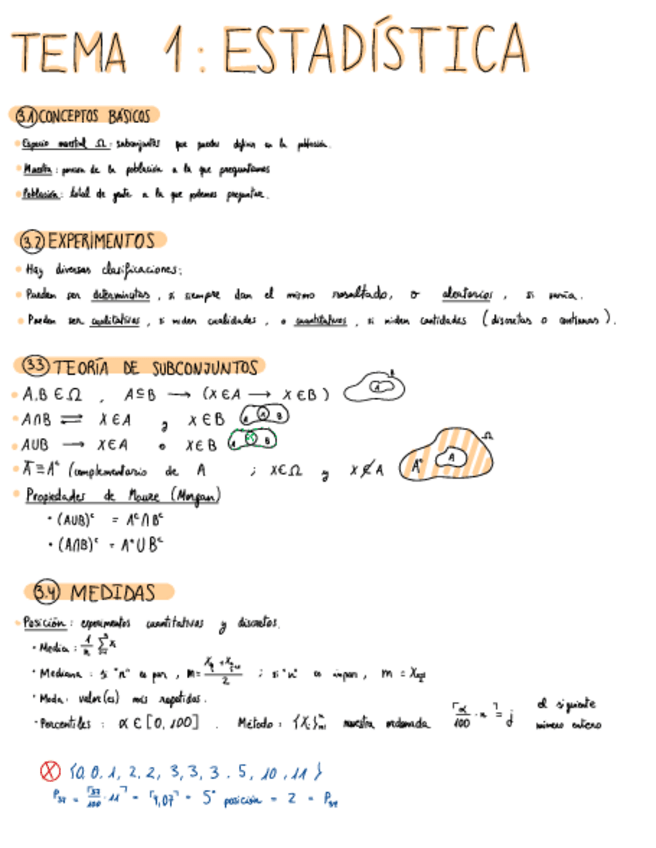 TEMA 1: ESTADÍSTICA
3.1 CONCEPTOS BÁSICOS
Espacio muestral Ω: subconjuntos que puedes definir en la población.
Muestra: porción de la población a la que preguntamos
Población: total de gente a la que podemos preguntar.
3.2 EXPERIMENTOS
Hay diversas clasificaciones:
Pueden ser determinatas, si siempre dan el mismo resultado, o aleatorios, si varía.
Pueden ser cualitativas, si miden cualidades, o cuantitativos, si miden cantidades (discretas o continuas).
3.3 TEORÍA DE SUBCONJUNTOS
A,B ∈ Ω , A⊆B → (X∈A → X∈B) A B
A∩B ⇌ X∈A y X∈B A B
A∪B → X∈A o X∈B A B
Ā ≡ Aᶜ (complementario de A ; X∈Ω y X∉A Aᶜ A Ω
Propiedades de (Morgan)
(A∪B)ᶜ = Aᶜ∩Bᶜ
(A∩B)ᶜ = Aᶜ∪Bᶜ
3.4 MEDIDAS
Posición: experimentos cuantitativas y discretos.
Media: 1/n Σ
Mediana: si "n" es par, m = /2 ; si "n" es impar, m =
Moda: valor(es) más repetidas.
Percentiles: α ∈ [0, 100]. Método: muestra ordenada ⌈α/100 · n⌉ = j el siguiente número entero
X {0, 0, 1, 2, 2, 3, 3, 3, 5, 10, 11}
P₃₇ = ⌈37/100 · 11⌉ = ⌈4,07⌉ = 5ª posición = 2 = P₃₇